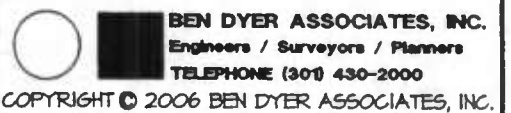 BEN DYER ASSOCIATES, INC.
Engineers / Surveyors / Planners
TELEPHONE (301) 430-2000
COPYRIGHT © 2006 BEN DYER ASSOCIATES, INC.